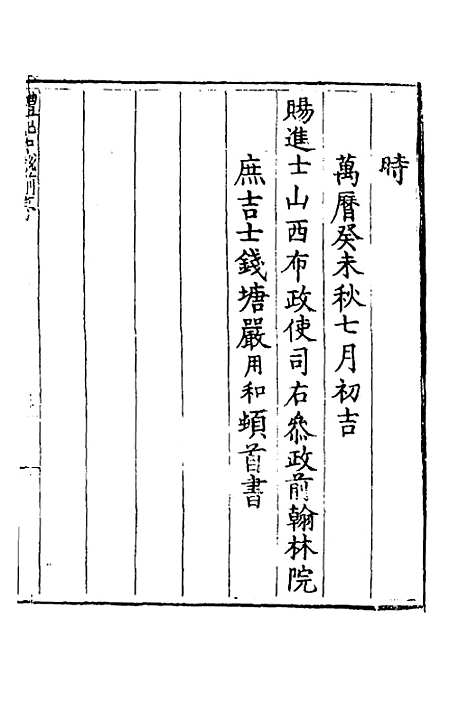 時
萬曆癸未秋七月初吉
賜進士山西布政使司右叅政前翰林院
庶吉士錢塘嚴用和頓首書